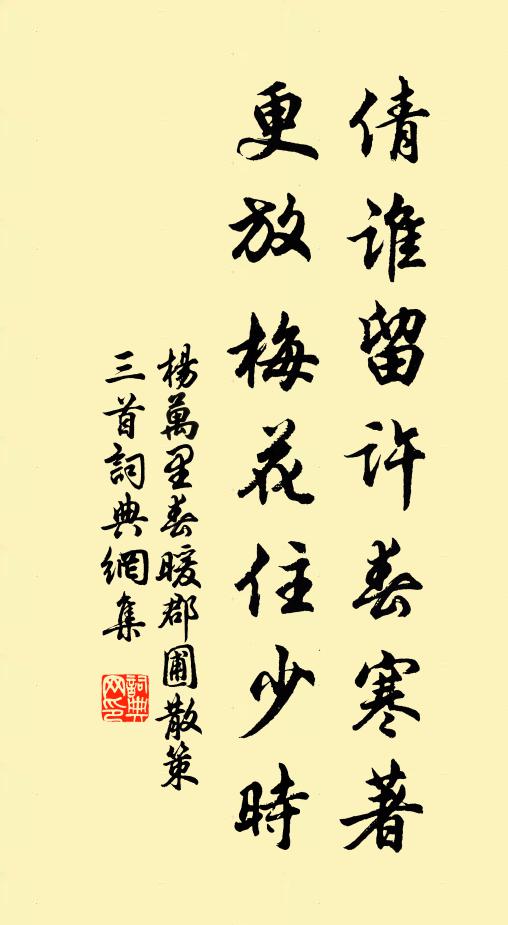 倩誰留許春寒著
更放梅花住少時
楊萬里春暖郡圃散策
三首詞典網集
詞典
网印